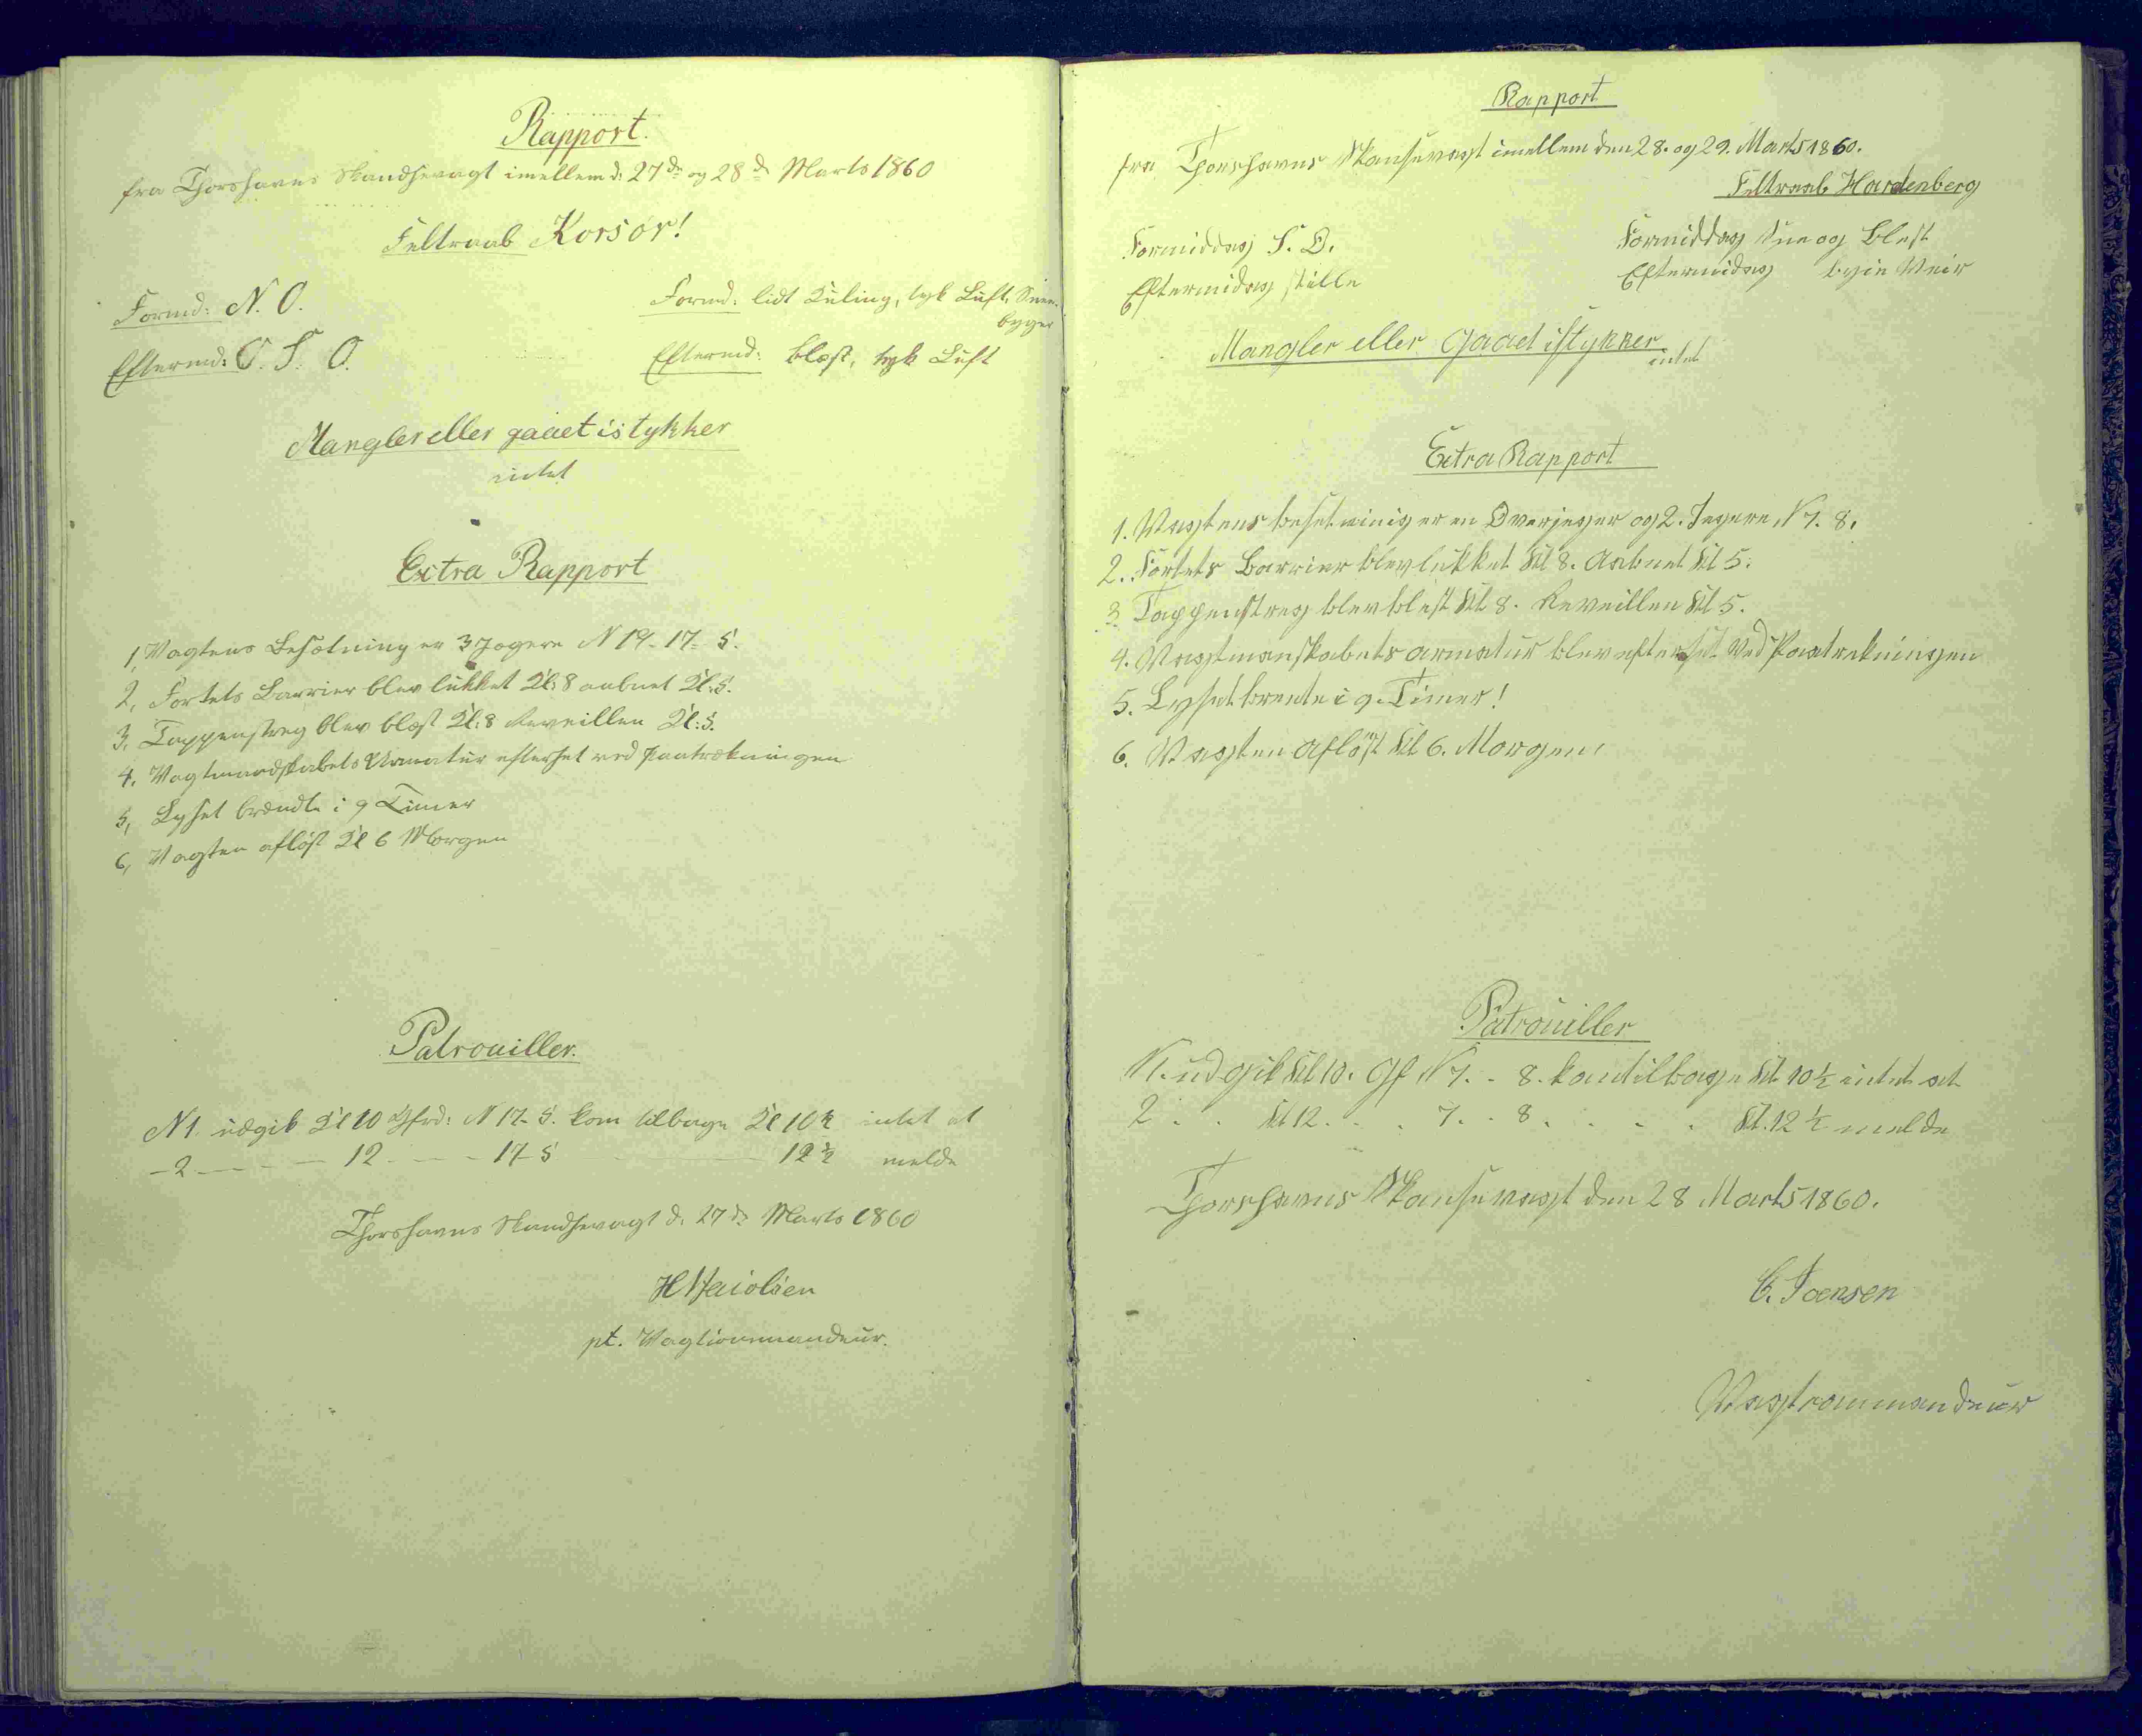 Rapport.
fra Thorshavns Skandsevagt imellem d: 27de og 28de Marts 1860
Feltraab Korsör!
Formd: N. O.
Formd: lidt Kuling, tyk Luft, Snee-
byger
Eftermd: O. S. O.
Eftermd: blæst, tyk Luft
Mangler eller gaaet istykker
intet
Extra Rapport
1, Vagtens Besætning er 3 Jægere N 19- 17- 5.
2, Fortets Barrier blev lukket Kl: 8 aabnet Kl: 5.
3, Tappenstreg blev blæst Kl: 8 Reveillen Kl: 5.
4, Vagtmandskabets Armatur efterset ved paatrækningen
5, Lyset brændte i 9 Timer
6, Vagten aflöst Kl 6 Morgen
Patrouiller.
N 1. udgik Kl 10 Gfrd: N 17- 5. kom tilbage Kl 10½ intet at
- 2 - - - - 12 - - - 17- 5 12½ melde
Thorshavns Skandsevagt d. 27de Marts 1860
pt. Vagtcommandeur.
Rapport
fra Thorshavns Skansevagt imellem den 28. og 29. Marts 1860.
Feltraab Hardenberg
Formiddag S. O.
Formiddag Sne og blest
Eftermidag stille
Eftermidag byie Veir
Mangler eller gaaet istykker
intet
Extra Rapport
1. Vagtens besetning er en Overjeger og 2. Jegere N 7. 8.
2. Fortets Barrier blev lukket Kl 8. Aabnet Kl 5.
3. Tappenstreg blev blest Kl 8. Reveillen Kl 5.
4. Vagtmanskabets armatur blev efterset Ved Paatrekningen
5. Lyset brente i 9. Timer!
6. Vagten aflöst Kl 6. Morgen
Patrouiller
N 1. udgik Kl 10. Gf N 7. - 8. kom tilbage Kl. 10½ intet at
2 . . Kl 12. . . 7. . 8 . . . . Kl. 12½ melde
Thorshavns Skansevagt den 28 Marts 1860.
C. Joensen
Vagtcommandeur